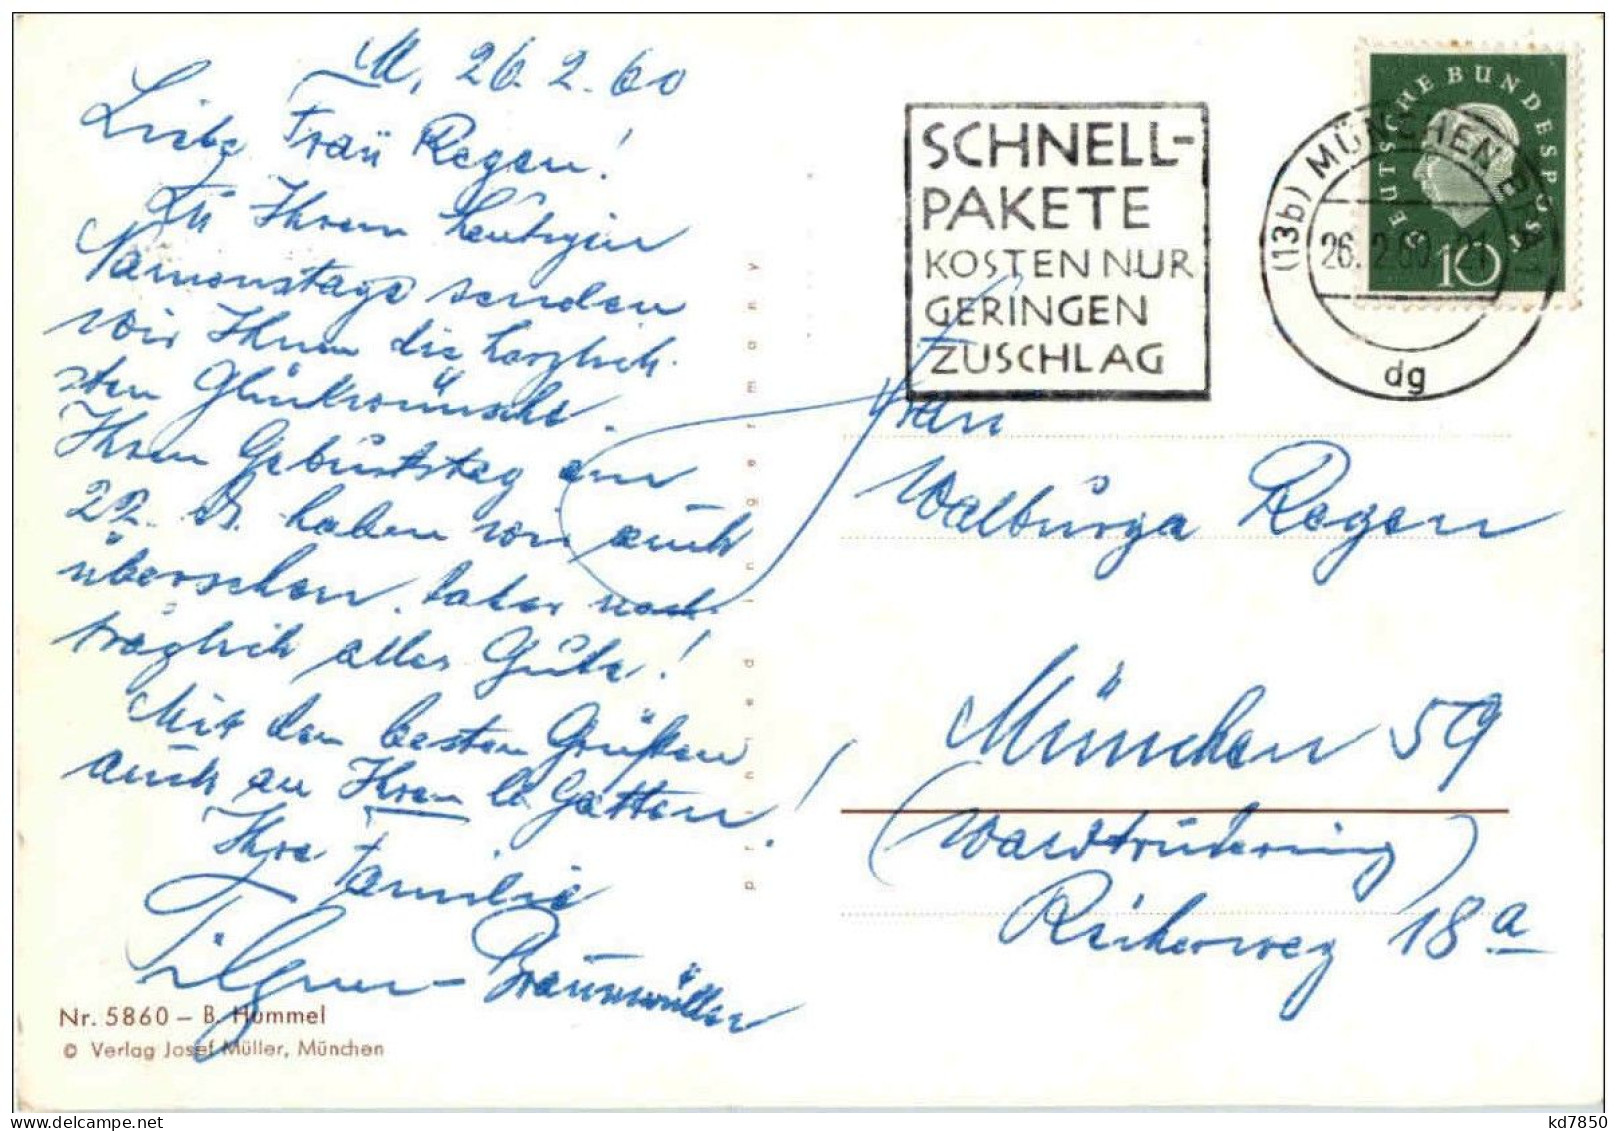 M, 26.2.60
Liebe Frau Regen!
Zu Ihrem heutigen
Namenstage senden
wir Ihnen die herzlich-
sten Glückwünsche.
Ihren Geburtstag am
22. ds. haben wir auch
übersehen, daher nach-
träglich alles Gute!
Mit den besten Grüßen
auch an Ihren lb Gatten!
Ihre Familie
Tilgner-Braunmüller
Nr. 5860 – B. Hummel
© Verlag Josef Müller, München
printed in germany
SCHNELL-
PAKETE
KOSTEN NUR
GERINGEN
ZUSCHLAG
(13b) MÜNCHEN BPA 1
26. 2.60. 21
dg
DEUTSCHE BUNDESPOST
10
Frau
Walburga Regen
München 59
(Waldtrudering)
Reiherweg 18a
kd7850